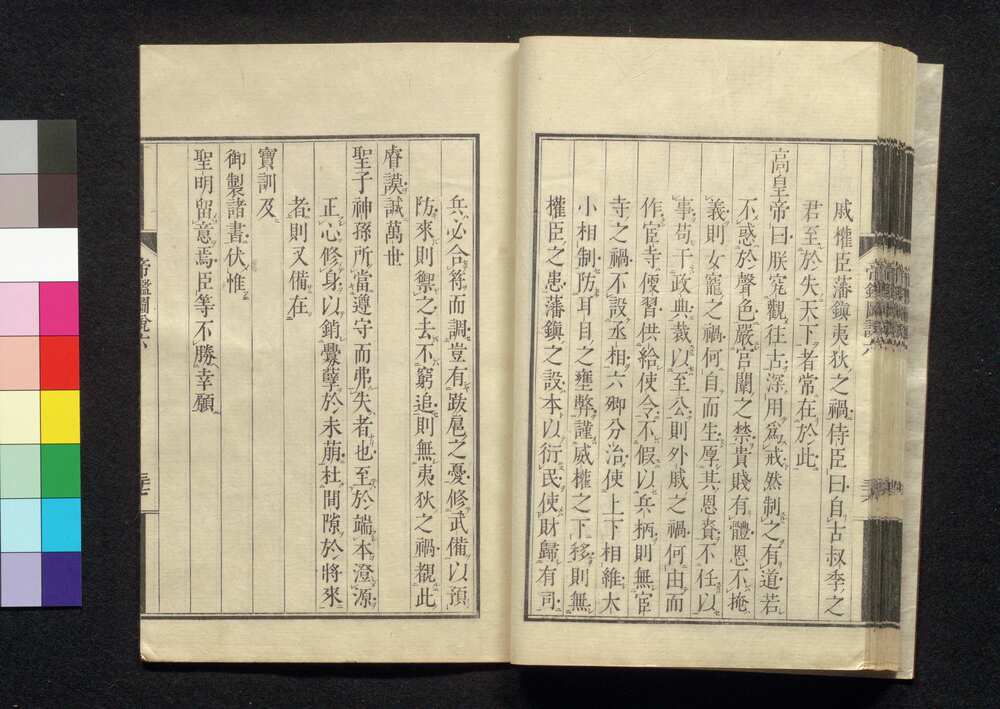 戚權臣藩鎭夷狄之禍侍臣曰自古叔季之
君至於失天下者常在於此
高皇帝曰朕究觀往古深用爲戒然制之有道若
不惑於聲色嚴宮闈之禁貴賤有體恩不掩
義則女寵之禍何自而生厚其恩賚不任以
事苟干政典裁以至公則外戚之禍何由而
作宦寺便習供給使令不假以兵柄則無宦
寺之禍不設丞相六卿分治使上下相維大
小相制防耳目之壅蔽謹威權之下移則無
權臣之患藩鎭之設本以衍民使財歸有司
兵必合符而調豈有跋扈之憂修武備以預
防來則禦之去不窮追則無夷狄之禍覩此
睿謨誠萬世
聖子神孫所當遵守而弗失者也至於端本澄源
正心修身以銷釁孽於未萠杜間隙於將來
者則又備在
寶訓及
御製諸書伏惟
聖明留意焉臣等不勝幸願
帝鑑圖說六